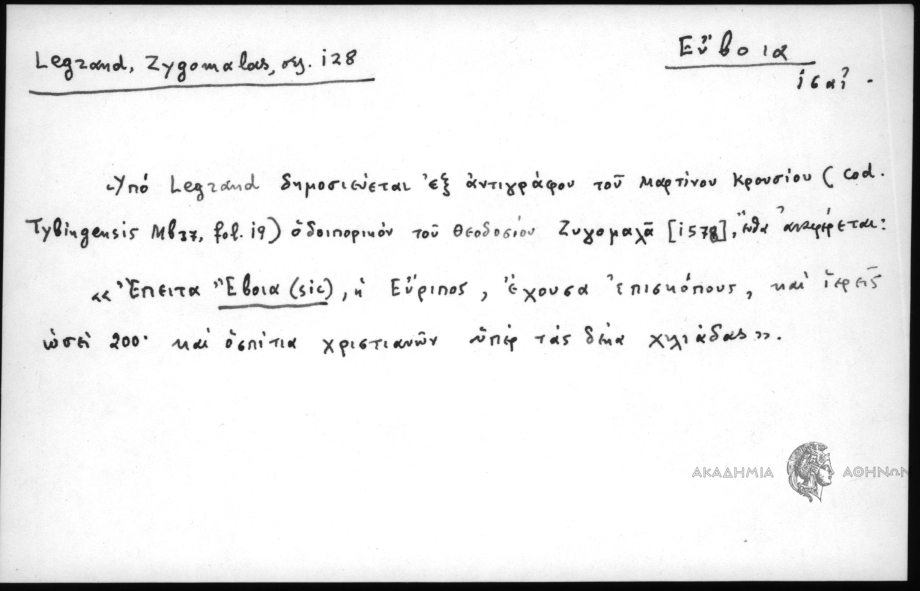 Legrand, Zygomalas, σελ. 128
Εὔβοια
ιϛαί -
Ὑπό Legrand δημοσιεύεται ἐξ ἀντιγράφου τοῦ Μαρτίνου Κρουσίου (cod.
Tybingensis Mb37, fol. 19) ὁδοιπορικόν τοῦ Θεοδοσίου Ζυγομαλᾶ [1578], ἔνθα ἀναφέρεται:
«Ἔπειτα Ἔβοια (sic), ἡ Εὔριπος, ἔχουσα ἐπισκόπους, καί ἱερεῖς
ὡσεί 200· καί ὁσπίτια χριστιανῶν ὑπέρ τάς δέκα χιλιάδας».
ΑΚΑΔΗΜΙΑ ΑΘΗΝΩΝ